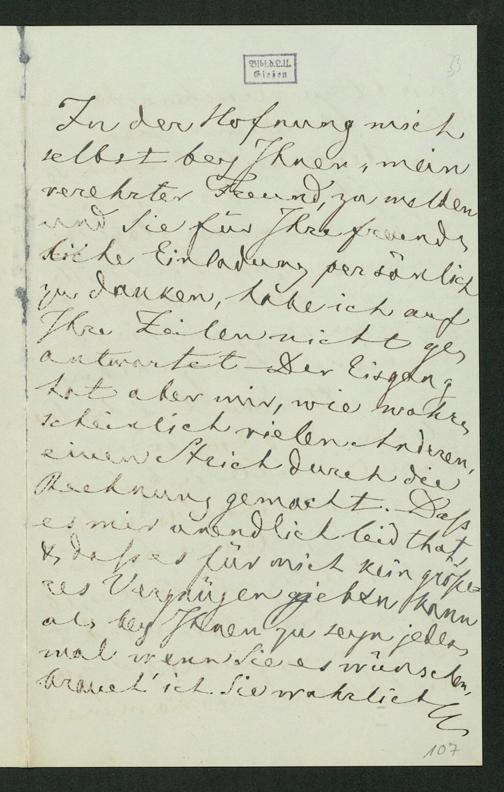 33
Bibl.d.L.U.
Gießen
In der Hofnung mich
selbst bey Ihnen, mein
verehrter Freund, zu melden
und Sie für Ihre freund,
liche Einladung persönlich
zu danken, habe ich auf
Ihre Zeilen nicht ge,
antwortet – Der Eisgang
hat aber mir, wie wahr,
scheinlich vielen Anderen,
einen Strich durch die
Rechnung gemacht. Daß
es mir unendlich leid that,
& daß es für mich kein größe=
res Vergnügen geben kann
als bey Ihnen zu seyn jedes,
mal wenn Sie es wünschen,
brauch' ich Sie wahrlich
107